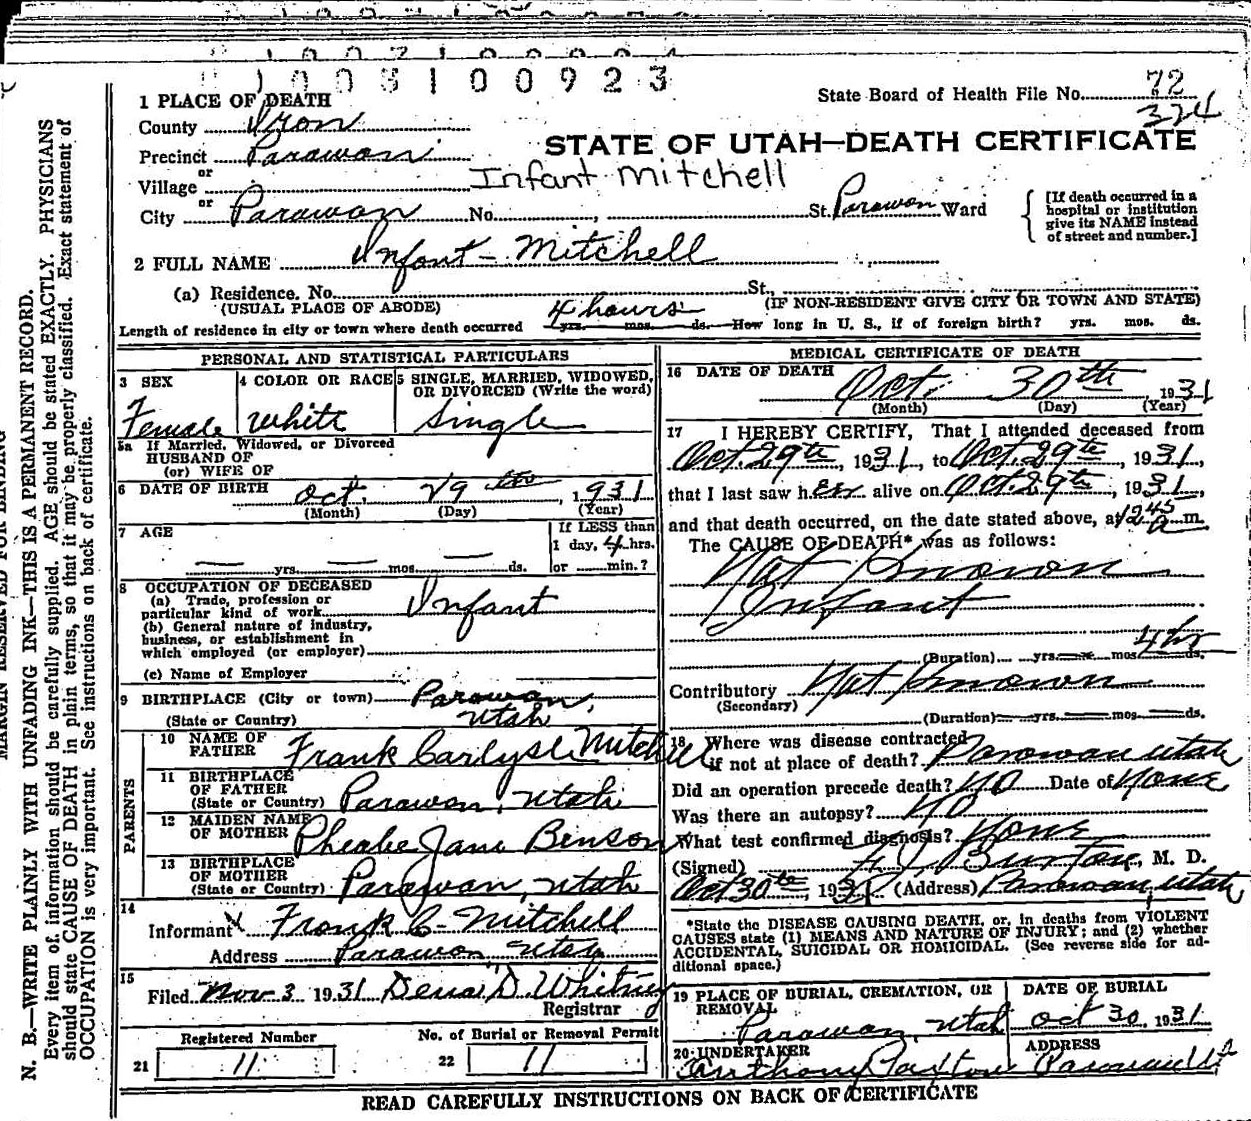 1003100923
State Board of Health File No. 72
324
1 PLACE OF DEATH
County Iron
STATE OF UTAH—DEATH CERTIFICATE
Precinct Parawan
or
Village
Infant Mitchell
or
City Parawan No. , St. Parawan Ward
[If death occurred in a hospital or institution give its NAME instead of street and number.]
2 FULL NAME Infant - Mitchell
(a) Residence, No. St.,
(USUAL PLACE OF ABODE) (IF NON-RESIDENT GIVE CITY OR TOWN AND STATE)
4 hours
Length of residence in city or town where death occurred yrs. mos. ds. How long in U. S., if of foreign birth? yrs. mos. ds.
PERSONAL AND STATISTICAL PARTICULARS
3 SEX
Female
4 COLOR OR RACE
White
5 SINGLE, MARRIED, WIDOWED, OR DIVORCED (Write the word)
Single
5a If Married, Widowed, or Divorced
HUSBAND OF
(or) WIFE OF
6 DATE OF BIRTH Oct. 29th, 1931
(Month) (Day) (Year)
7 AGE
yrs. mos. ds.
If LESS than
1 day, 4 hrs.
or min.?
8 OCCUPATION OF DECEASED
(a) Trade, profession or
particular kind of work Infant
(b) General nature of industry,
business, or establishment in
which employed (or employer)
(c) Name of Employer
9 BIRTHPLACE (City or town) Parowan,
(State or Country) Utah
PARENTS
10 NAME OF FATHER Frank Carlysle Mitchell
11 BIRTHPLACE OF FATHER
(State or Country) Parawan, Utah
12 MAIDEN NAME OF MOTHER Pheabe Jane Benson
13 BIRTHPLACE OF MOTHER
(State or Country) Parawan, Utah
14
Informant X Frank C- Mitchell
Address Parawan, Utah
15
Filed Nov 3 1931 D. Whitney
Registrar
Registered Number
21 11
No. of Burial or Removal Permit
22 11
MEDICAL CERTIFICATE OF DEATH
16 DATE OF DEATH Oct. 30th 1931
(Month) (Day) (Year)
17 I HEREBY CERTIFY, That I attended deceased from
Oct. 29th, 1931, to Oct. 29th, 1931,
that I last saw her alive on Oct. 29th, 1931,
and that death occurred, on the date stated above, at 1245 a m.
The CAUSE OF DEATH* was as follows:
Not Known
Infant
4 hr
(Duration) yrs. mos. ds.
Contributory Not Known
(Secondary)
(Duration) yrs. mos. ds.
18 Where was disease contracted
if not at place of death? Parowan Utah
Did an operation precede death? No Date of None
Was there an autopsy? No
What test confirmed diagnosis? None
(Signed) Burton, M. D.
Oct 30th 1931 (Address) Parowan, Utah
*State the DISEASE CAUSING DEATH, or, in deaths from VIOLENT
CAUSES state (1) MEANS AND NATURE OF INJURY; and (2) whether
ACCIDENTAL, SUICIDAL OR HOMICIDAL. (See reverse side for ad-
ditional space.)
19 PLACE OF BURIAL, CREMATION, OR REMOVAL
Parawan, Utah
DATE OF BURIAL
Oct 30, 1931
20 UNDERTAKER
Anthony Paxton
ADDRESS
Parowan Ut
READ CAREFULLY INSTRUCTIONS ON BACK OF CERTIFICATE
MARGIN RESERVED FOR BINDING
N. B.—WRITE PLAINLY WITH UNFADING INK—THIS IS A PERMANENT RECORD.
Every item of information should be carefully supplied. AGE should be stated EXACTLY. PHYSICIANS
should state CAUSE OF DEATH in plain terms, so that it may be properly classified. Exact statement of
OCCUPATION is very important. See instructions on back of certificate.